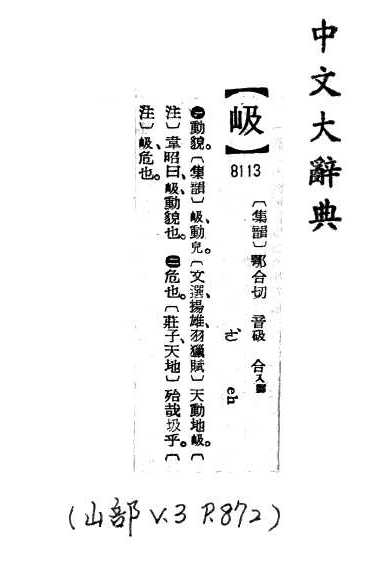 中文大辭典
【岋】
8113
〔集韻〕鄂合切 音硪 合入聲
ㄜˊ eh
㊀動貌。〔集韻〕岋動皃。〔文選、揚雄、羽獵賦〕天動地岋。〔
注〕韋昭曰、岋、動貌也。㊁危也。〔莊子、天地〕殆哉圾乎。〔
注〕岋、危也。
(山部 V.3 P.872)